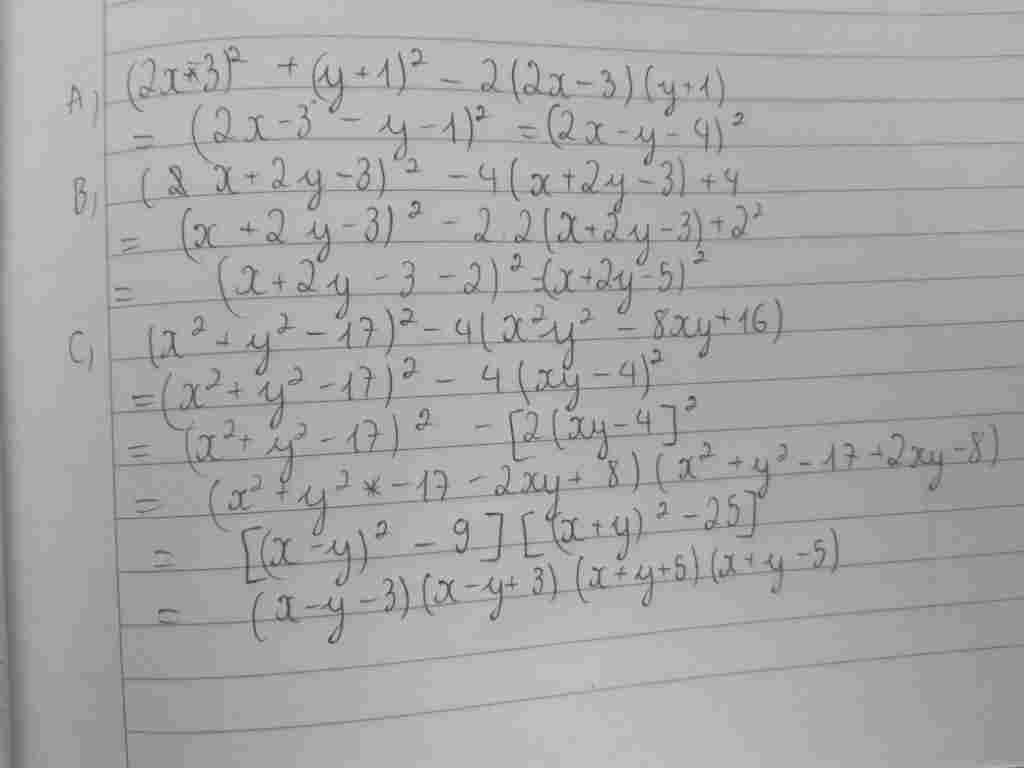 A) (2x-3)² + (y+1)² - 2(2x-3)(y+1)
= (2x-3 - y-1)² = (2x-y-4)²
B) (x+2y-3)² - 4(x+2y-3)+4
= (x+2y-3)² - 2.2(x+2y-3)+2²
= (x+2y-3-2)² = (x+2y-5)²
C) (x²+y²-17)² - 4(x²y² - 8xy+16)
= (x²+y²-17)² - 4(xy-4)²
= (x²+y²-17)² - [2(xy-4]²
= (x²+y²-17-2xy+8)(x²+y²-17+2xy-8)
= [(x-y)² - 9][(x+y)² - 25]
= (x-y-3)(x-y+3)(x+y+5)(x+y-5)